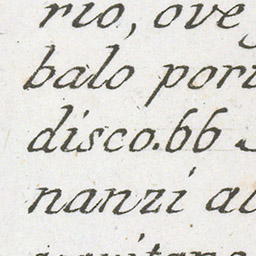 rio, ove
balo por
disco.66
nanzi a